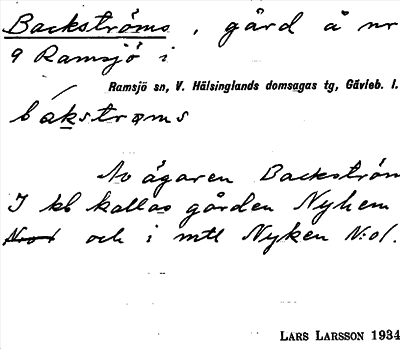 Backströms, gård å nr
9 Ramsjö i
Ramsjö sn, V. Hälsinglands domsagas tg, Gävleb. l.
bákstrøms
Av ägaren Backström
I kb kallas gården Nyhem
och i mtl Nyken N:o 1.
LARS LARSSON 1934